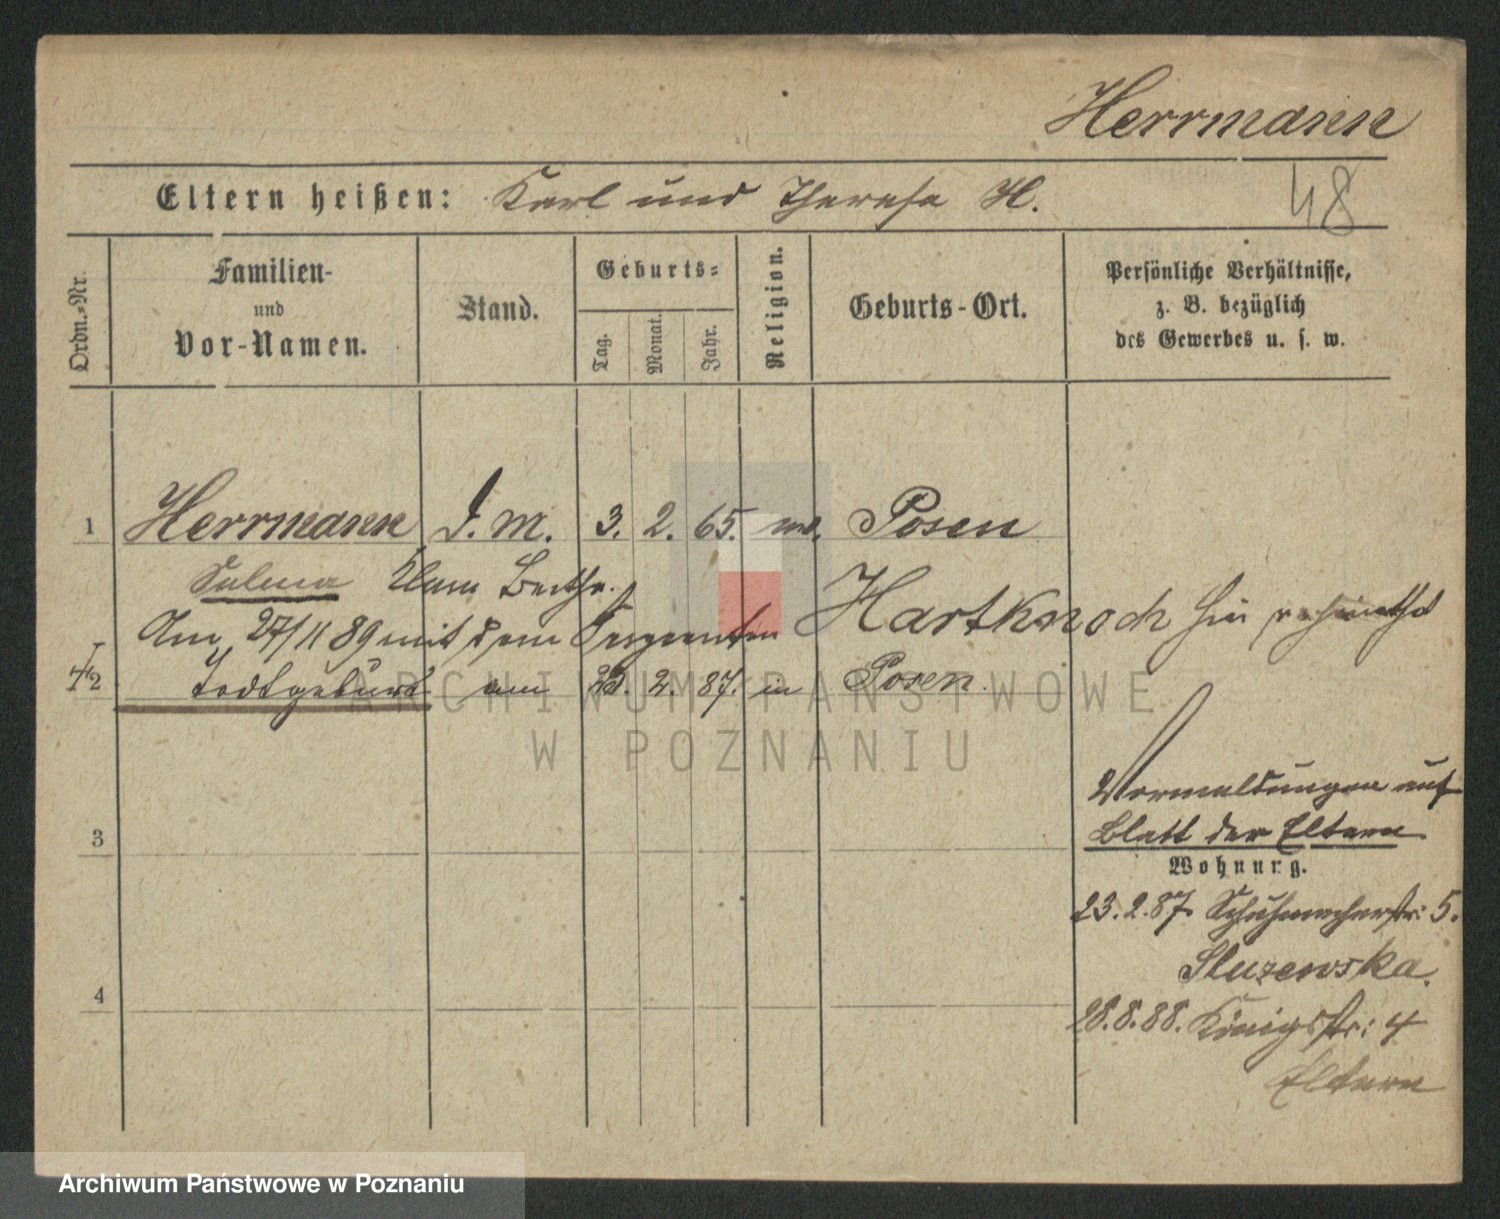 Herrmann
48
Eltern heißen: Karl und Therese H.
Ordn.-Nr.
Familien-
und
Vor-Namen.
Stand.
Geburts-
Tag.
Monat.
Jahr.
Religion.
Geburts-Ort.
Persönliche Verhältnisse,
z. B. bezüglich
des Gewerbes u. s. w.
1 Herrmann d. m. 3. 2. 65. Posen
Selma Klara Bertha.
Am 27/11 89 mit dem Sergeanten Hartknoch hier
2 Todtgeburt am 23. 2. 87. in Posen.
ARCHIWUM PAŃSTWOWE
W POZNANIU
Vormeldungen auf
Blatt der Eltern
Wohnung.
3
23.2.87. Schuhmacherstr: 5.
Sluzewska.
4
28.8.88. Königsstr: 4
Eltern
Archiwum Państwowe w Poznaniu